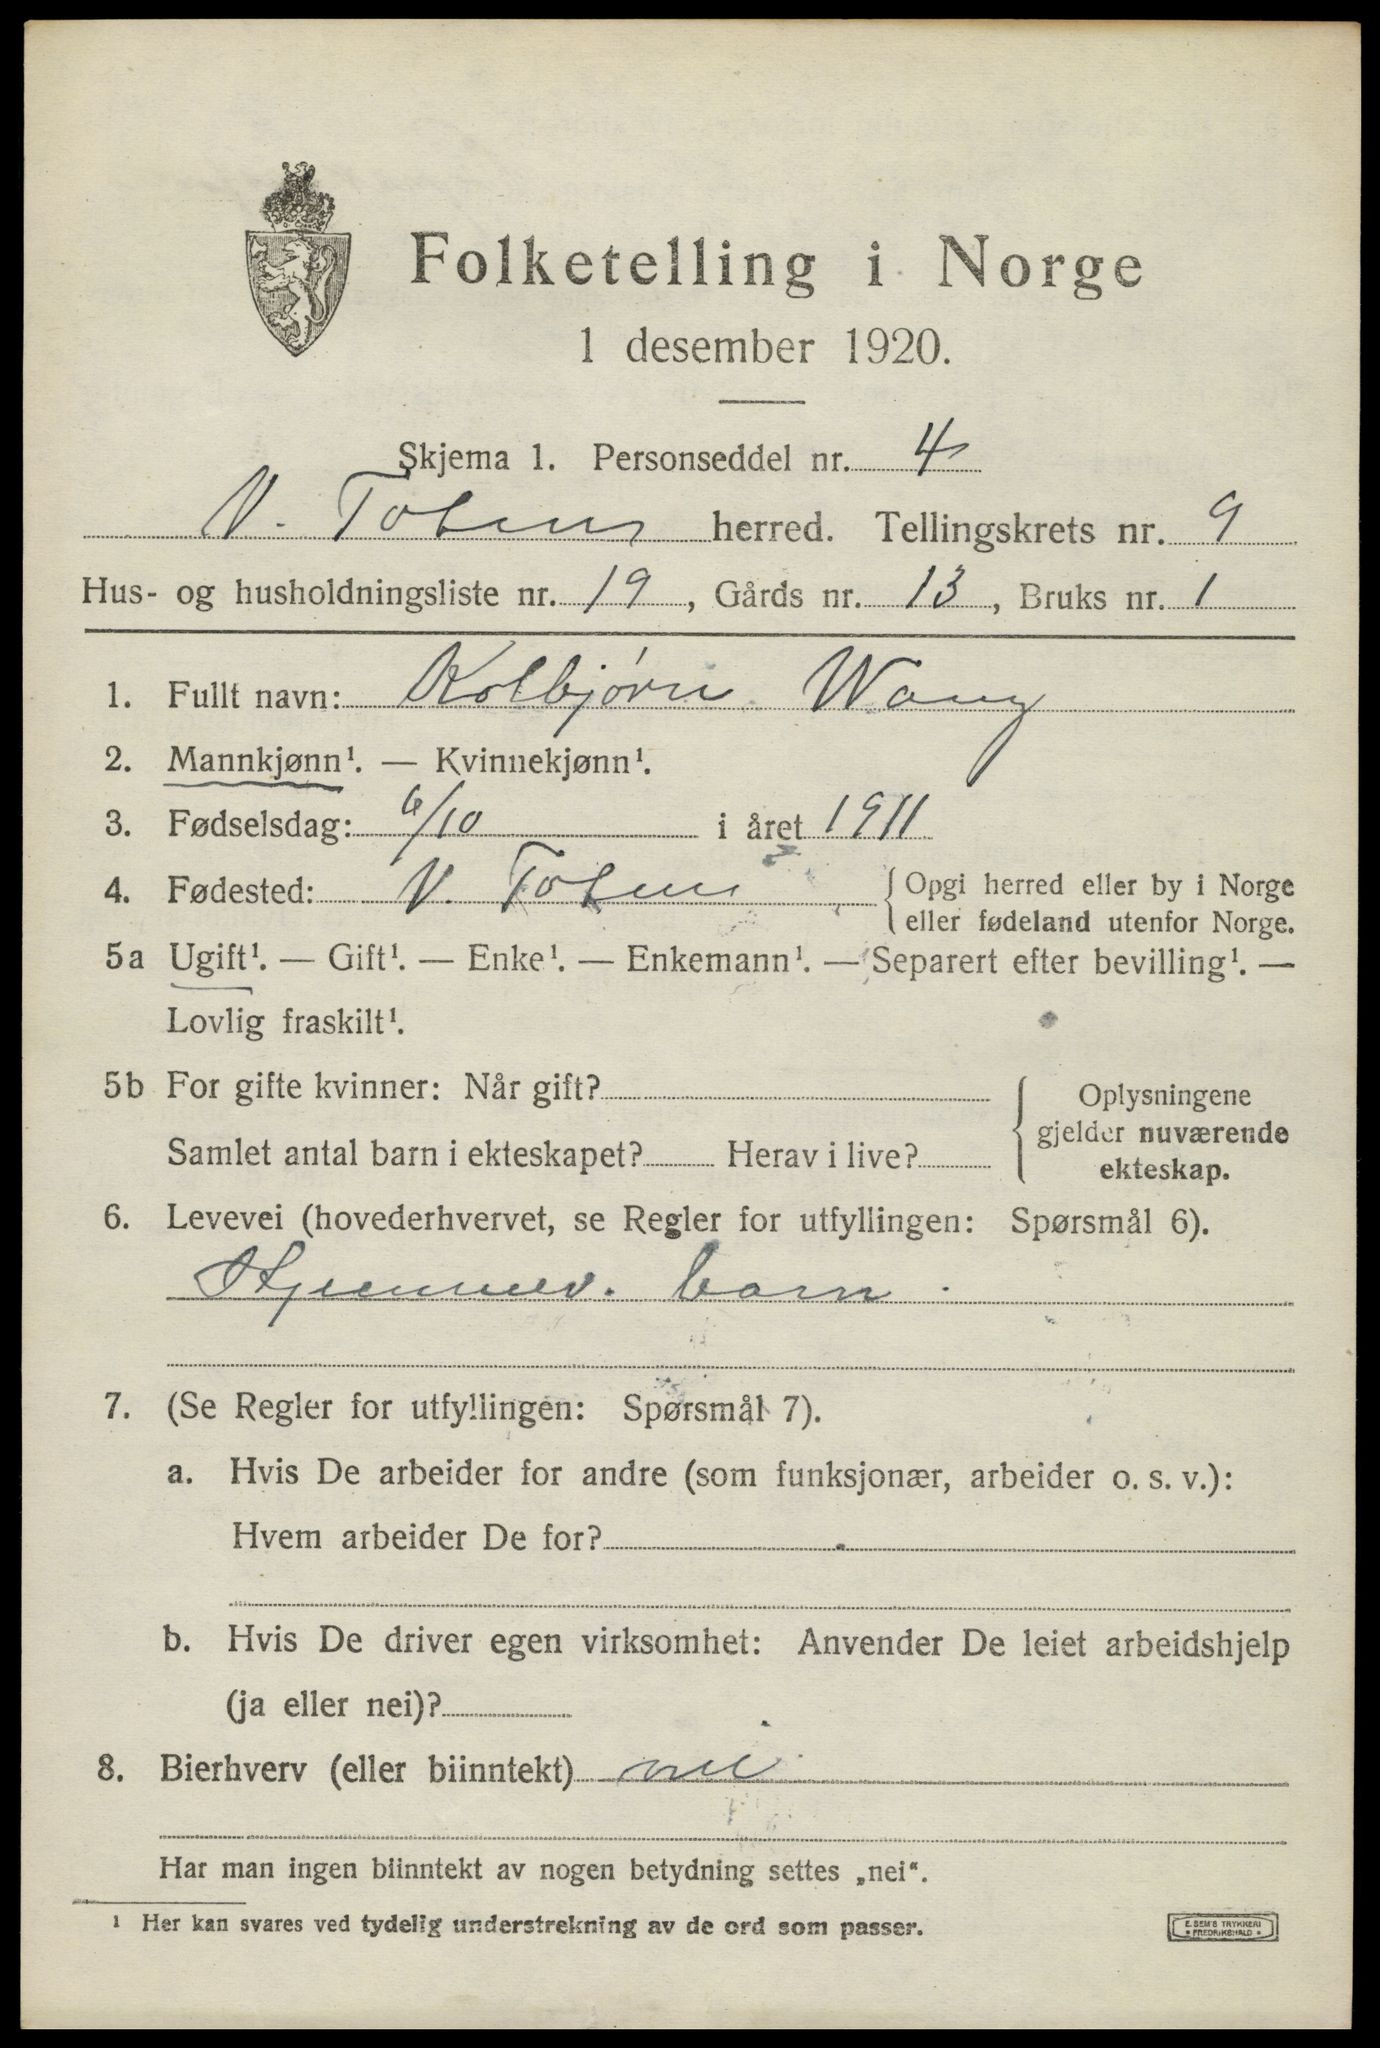 Folketelling i Norge
1 desember 1920.
Skjema 1. Personseddel nr. 4
V. Toten herred. Tellingskrets nr. 9
Hus- og husholdningsliste nr. 19, Gårds nr. 13, Bruks nr. 1
1. Fullt navn: Kolbjørn Wang
2. Mannkjønn¹. — Kvinnekjønn¹.
3. Fødselsdag: 6/10 i året 1911
4. Fødested: V. Toten { Opgi herred eller by i Norge
eller fødeland utenfor Norge.
5a Ugift¹. — Gift¹. — Enke¹. — Enkemann¹. — Separert efter bevilling¹. —
Lovlig fraskilt¹.
5b For gifte kvinner: Når gift?
Samlet antal barn i ekteskapet? Herav i live?
{ Oplysningene
gjelder nuværende
ekteskap.
6. Levevei (hovederhvervet, se Regler for utfyllingen: Spørsmål 6).
Hjemmev. barn.
7. (Se Regler for utfyllingen: Spørsmål 7).
a. Hvis De arbeider for andre (som funksjonær, arbeider o. s. v.):
Hvem arbeider De for?
b. Hvis De driver egen virksomhet: Anvender De leiet arbeidshjelp
(ja eller nei)?
8. Bierhverv (eller biinntekt) nei
Har man ingen biinntekt av nogen betydning settes „nei“.
¹ Her kan svares ved tydelig understrekning av de ord som passer.
E. SEM'S TRYKKERI
• FREDRIKSHALD •